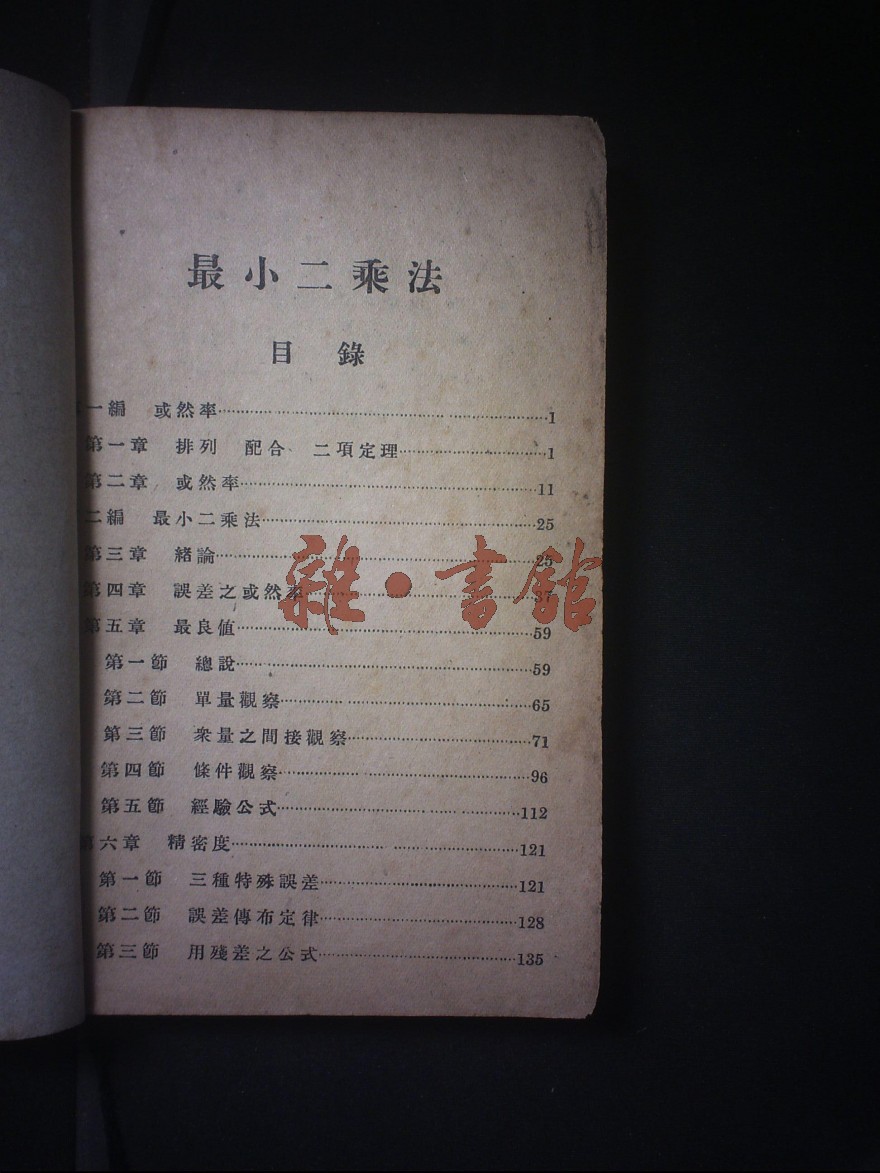 最小二乘法
目錄
一編 或然率 1
第一章 排列 配合 二項定理 1
第二章 或然率 11
二編 最小二乘法 25
第三章 緒論 25
第四章 誤差之或然率 37
雜·書館
第五章 最良值 59
第一節 總說 59
第二節 單量觀察 65
第三節 衆量之間接觀察 71
第四節 條件觀察 96
第五節 經驗公式 112
第六章 精密度 121
第一節 三種特殊誤差 121
第二節 誤差傳布定律 128
第三節 用殘差之公式 135